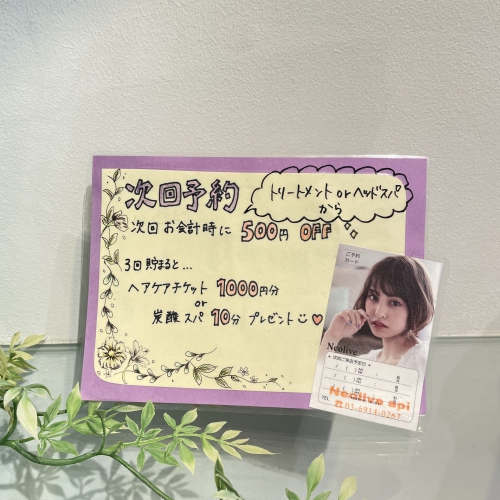 次回予約
トリートメント or ヘッドスパ
から
次回 お会計時に 500円 OFF
3回貯まると...
ヘアケアチケット 1000円分
or
炭酸スパ 10分 プレゼント
ご予約
カード
Neolive
次回ご来店予定日
Neolive api
☎03-6914-0267
TEL